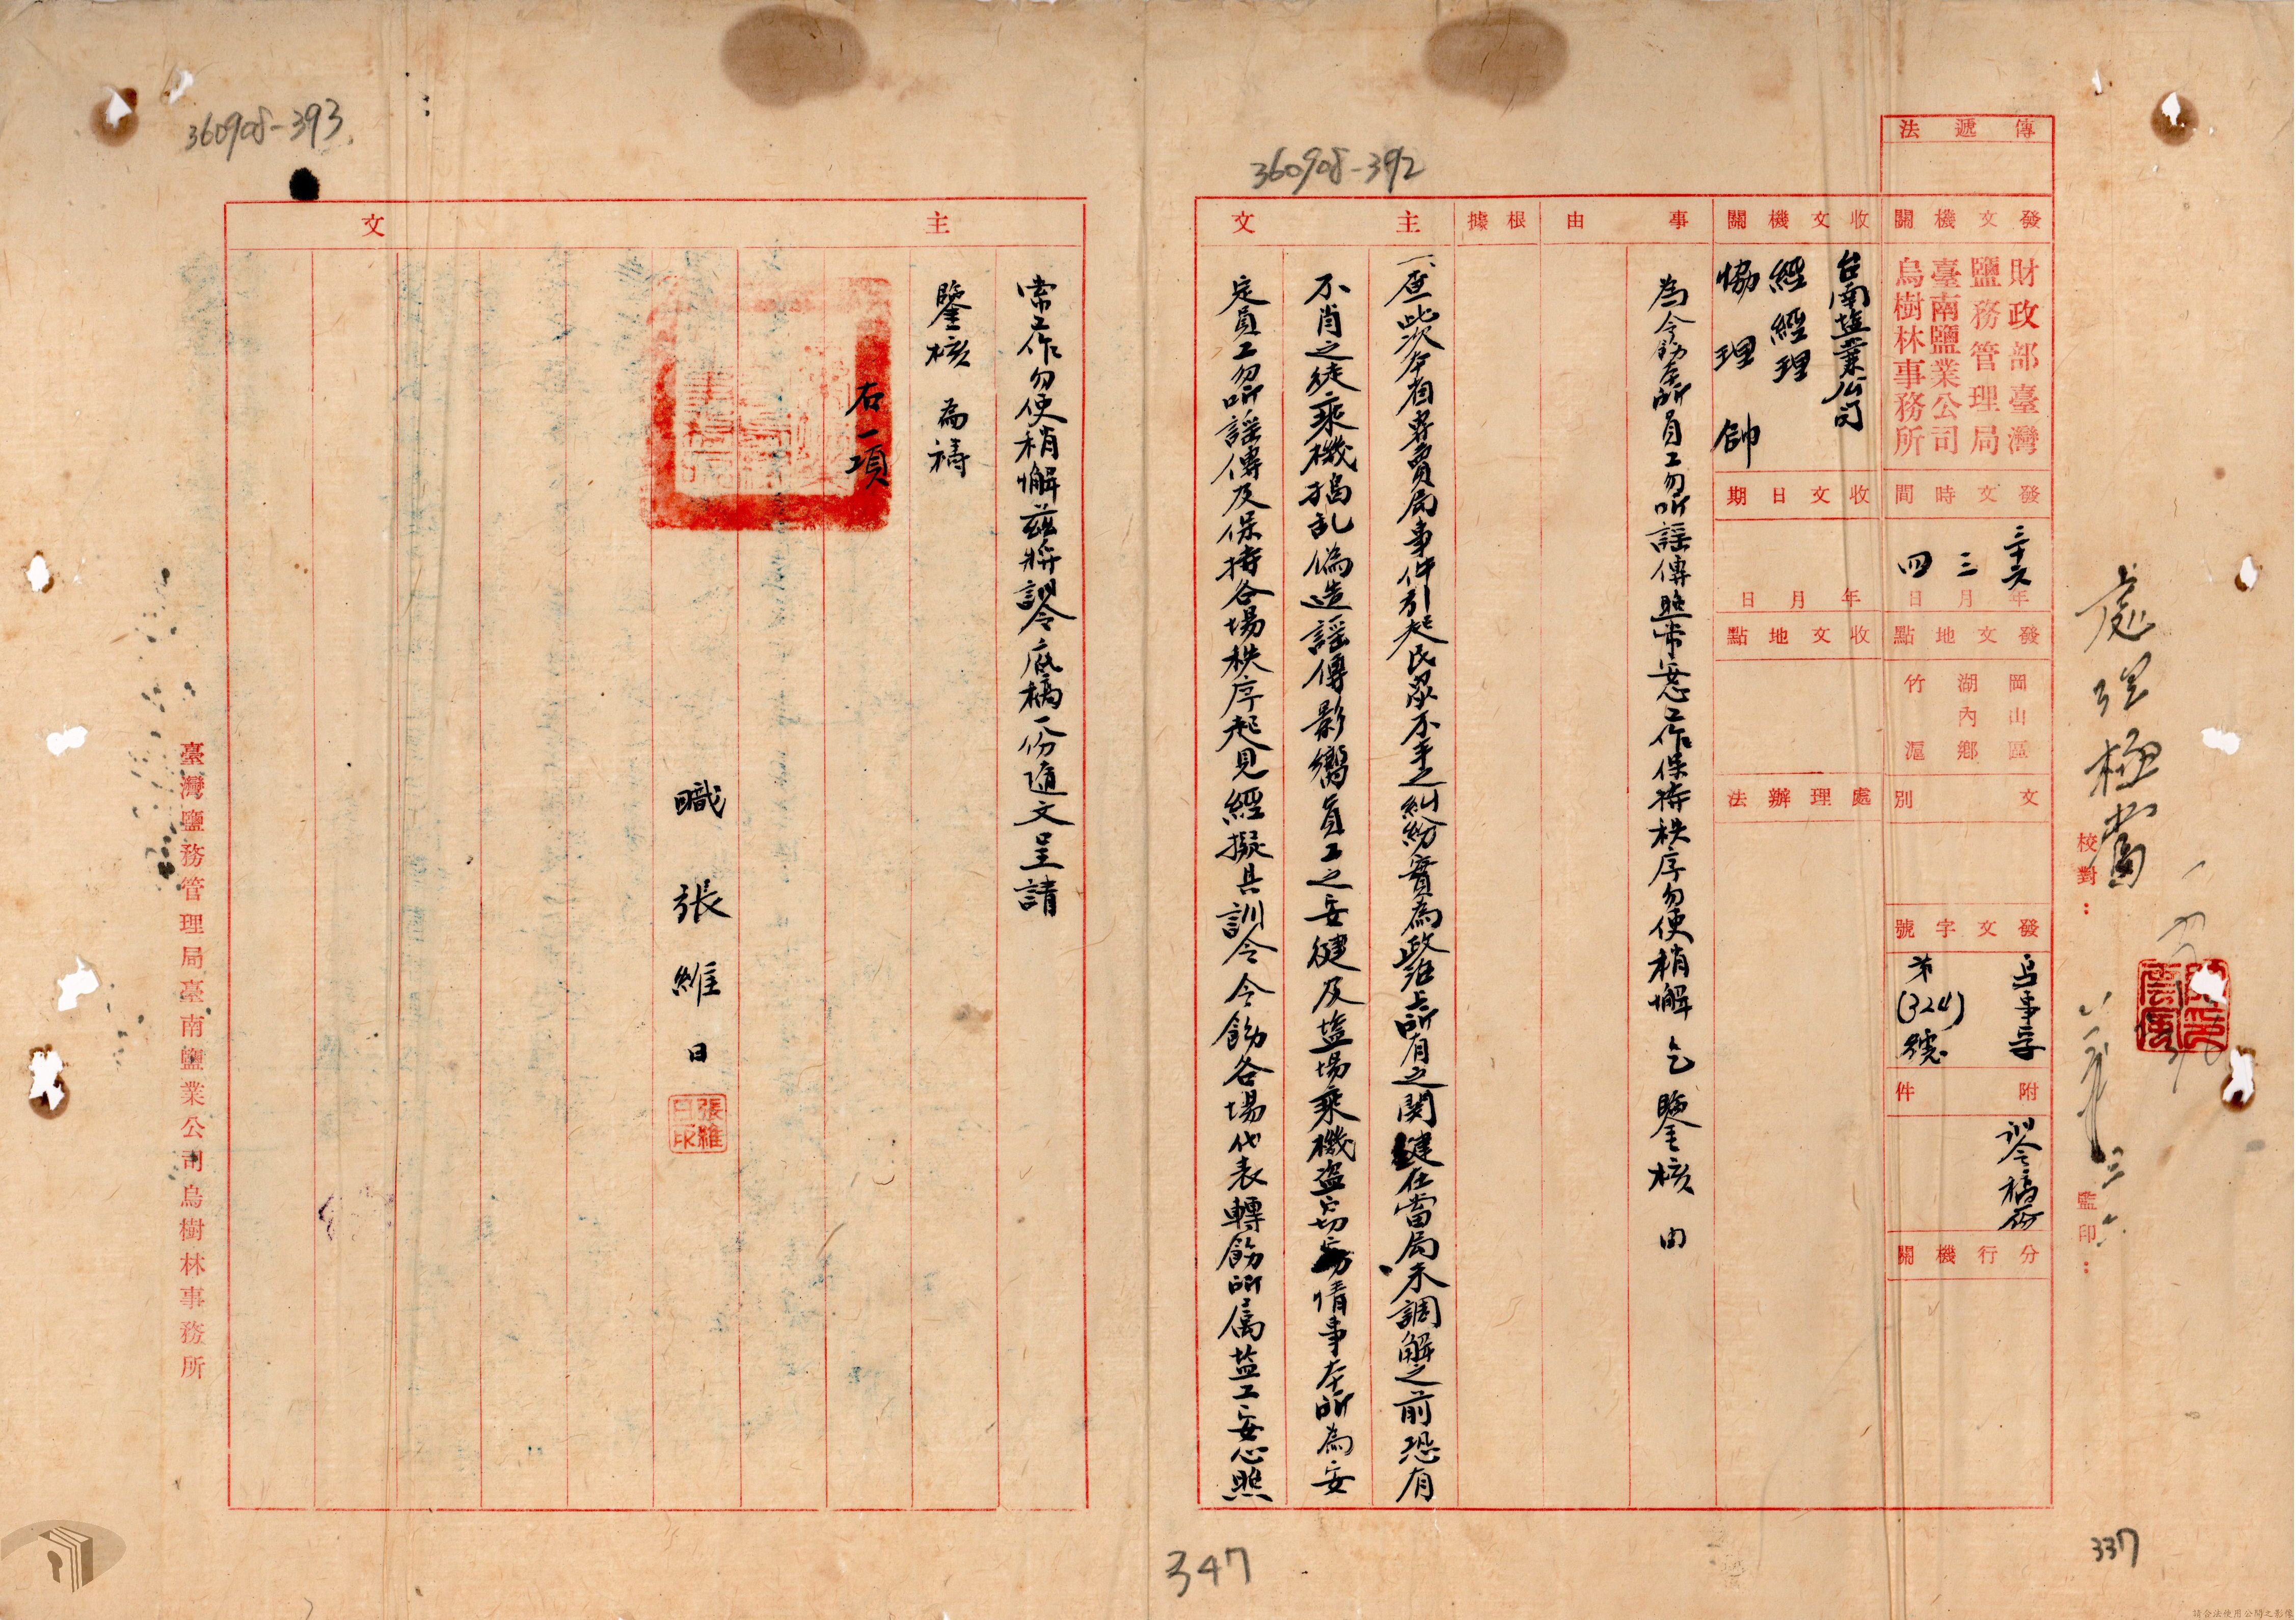 360908-392
傳遞法
發文機關
財政部臺灣
鹽務管理局
臺南鹽業公司
烏樹林事務所
發文時間
三十六年
三月
四日
發文地點
岡山區
湖內鄉
竹滬
文別
發文字號
烏事字
第(324)號
附件
訓令稿一份
分行機關
收文機關
台南塩業公司
經經理
協理帥
收文日期
年月日
收文地點
處理辦法
事由
為令飭本所員工勿听謠傳照常安心工作保持秩序勿使稍懈乞鑒核由
根據
主文
一、查此次本省專賣局事件引起民眾不幸之糾紛實為政治上所有之関鍵在當局未調解之前恐有
不肖之徒乘機搗乱偽造謠傳影響員工之安徤及塩場乘機盜窃等情事本所為安
定員工勿听謠傳及保持各場秩序起見經擬具訓令令飭各場代表轉飭所属塩工安心照
處理極當
校對：
監印：
337
347
360908-393
主文
常工作勿使稍懈茲將訓令底稿一份隨文呈請
鑒核為禱
右一項
職張維日
張維日印
臺灣鹽務管理局臺南鹽業公司烏樹林事務所
請合法使用公開之影像